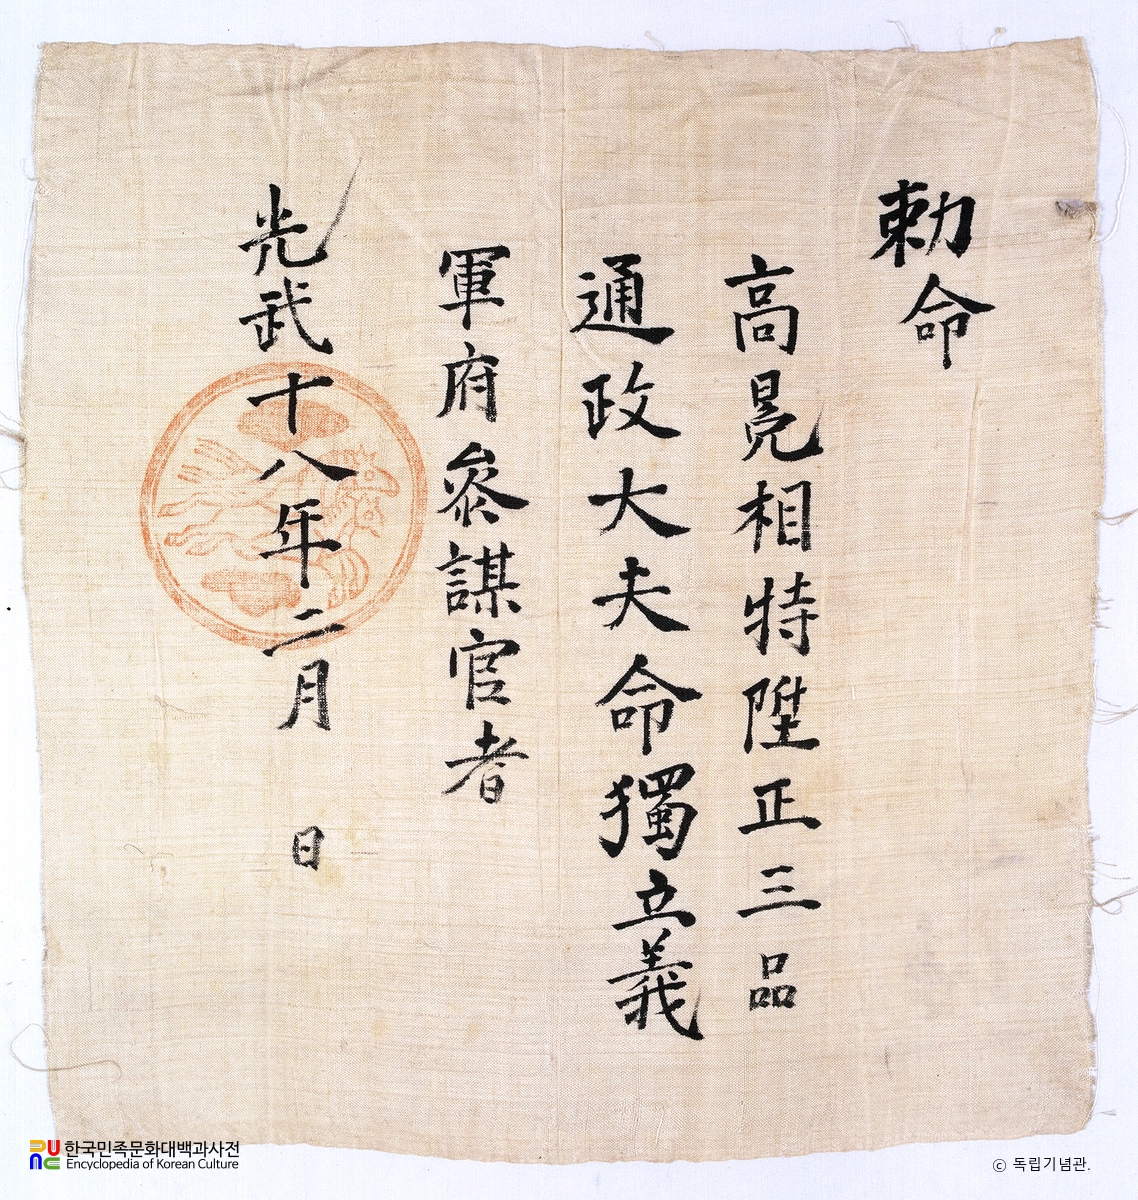 勅命
高冕相特陞正三品
通政大夫命獨立義
軍府參謀官者
光武十八年二月 日
한국민족문화대백과사전
Encyclopedia of Korean Culture
ⓒ 독립기념관.